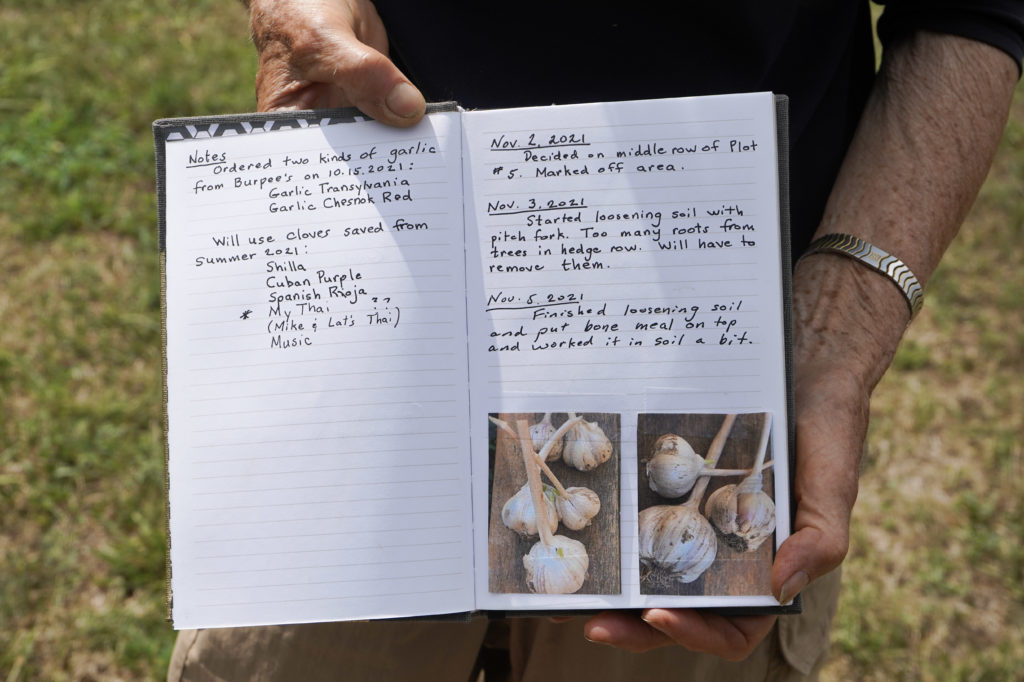 Notes
Ordered two kinds of garlic
from Burpee's on 10.15.2021:
Garlic Transylvania
Garlic Chesnok Red
Will use cloves saved from
Summer 2021:
Shilla
Cuban Purple
Spanish Rioja
* My Thai ??
(Mike & Lat's Thai)
Music
Nov. 2, 2021
Decided on middle row of Plot
#5. Marked off area.
Nov. 3, 2021
Started loosening soil with
pitch fork. Too many roots from
trees in hedge row. Will have to
remove them.
Nov. 5, 2021
Finished loosening soil
and put bone meal on top
and worked it in soil a bit.